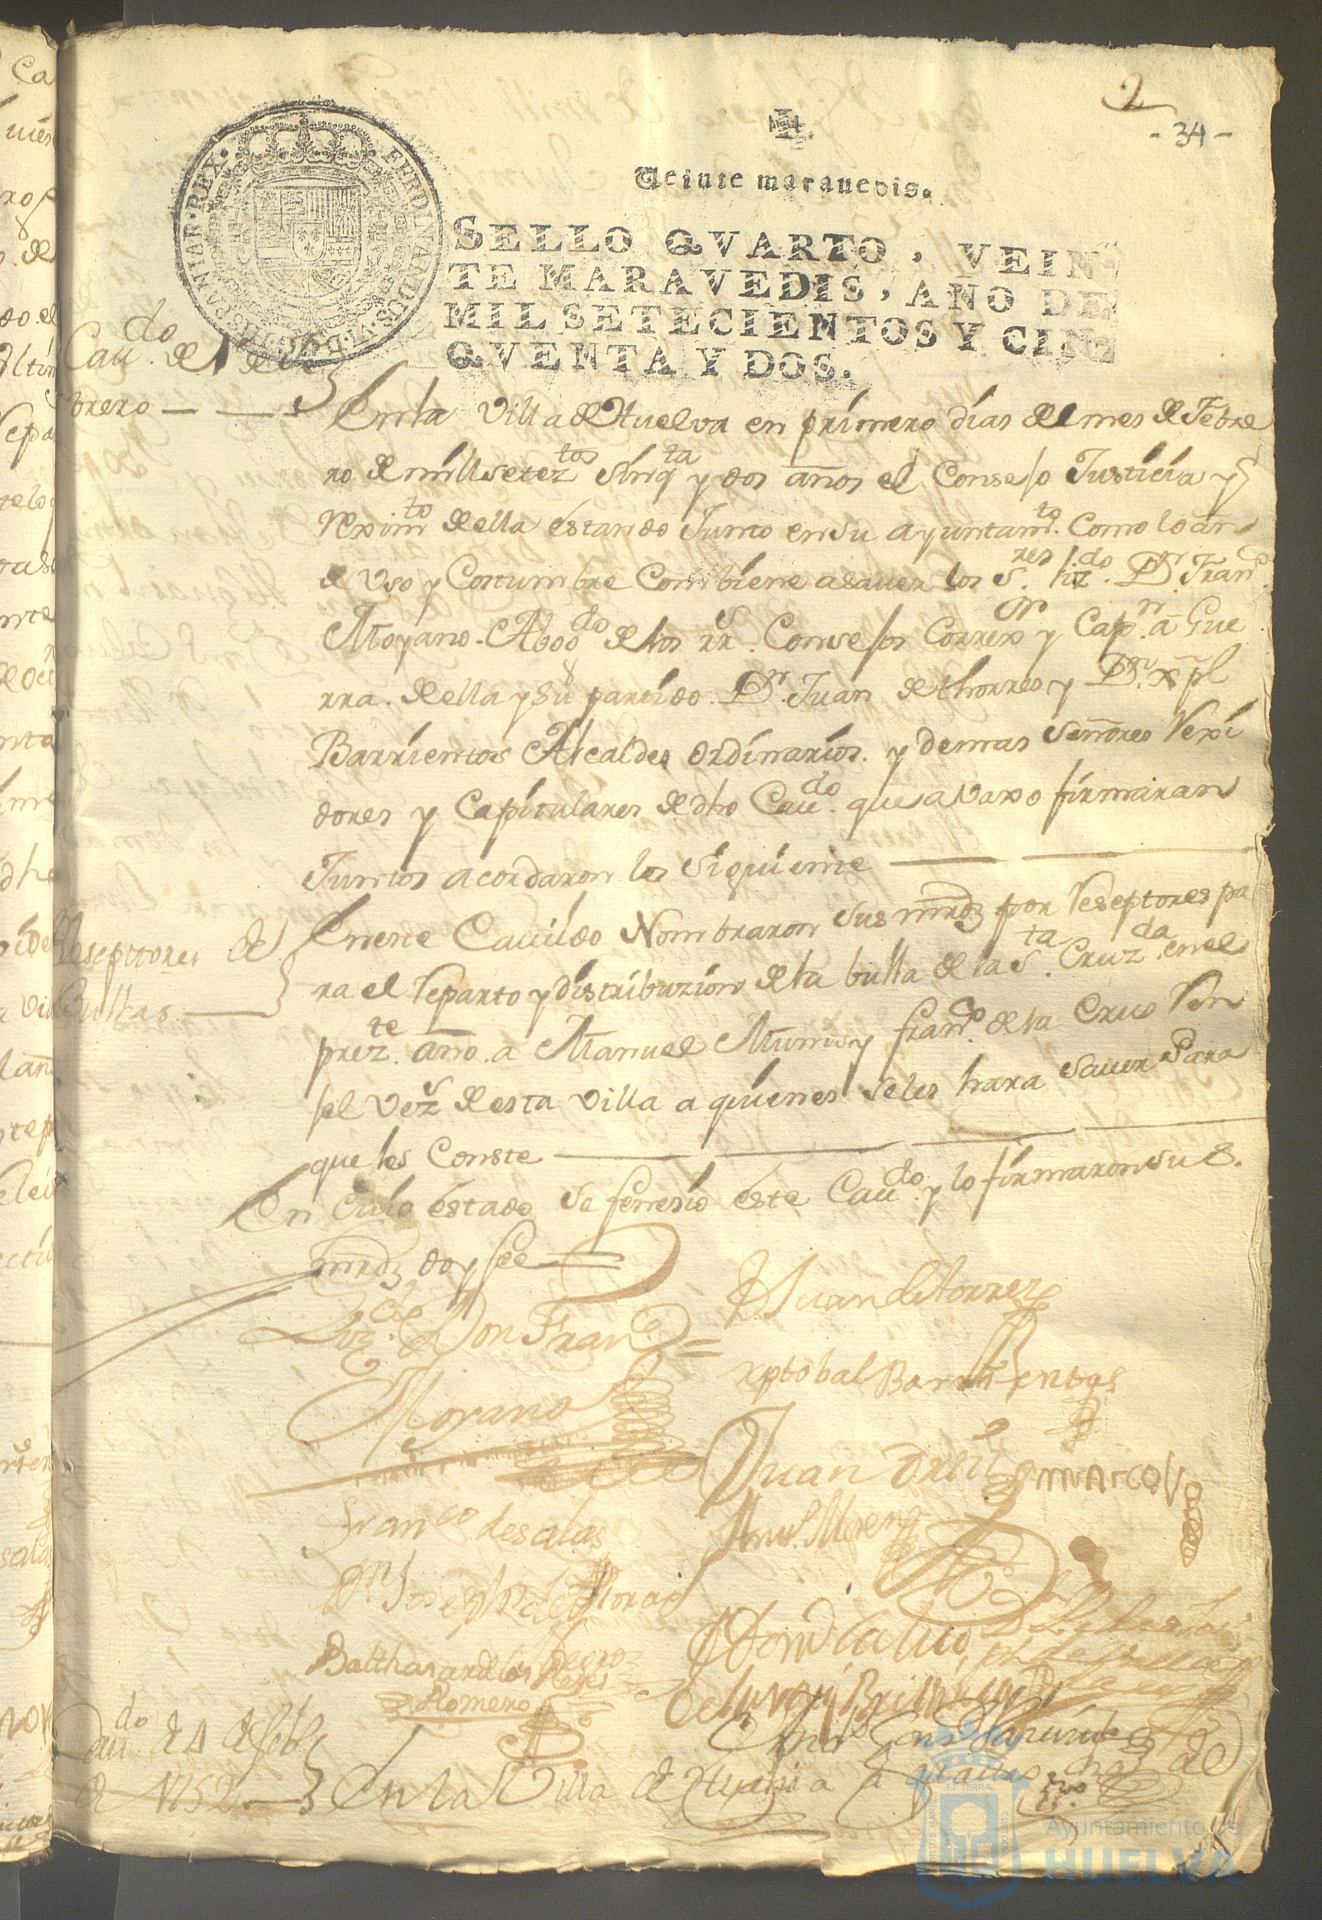 2
- 34 -
Veinte maravedis.
SELLO QVARTO, VEIN
TE MARAVEDIS, AÑO DE
MIL SETECIENTOS Y CIN
QVENTA Y DOS.
FERDINANDUS VI D G HISPANIAR REX
Caudo de 1 de fe
brero
En la Villa de Huelva en primero dias del mes de Febre
ro de mill seteztos sinqta y dos años el Consejo Justicia y
Reximto de ella estando Junto en su ayuntamto. Como lo an
de Uso y Costumbre Combiene a sauer los Sres Lizdo. Dn Franco
Moyano. Abogdo de los Rs. Consejos Correxor y Capn a Gue
rra. de ella y su partido. Dn Juan de thorres y Dn xpl
Barrientos Alcaldes ordinarios. y demas Señores Rexi
dores y Capitulares de dho Caudo. que avaxo firmaran
Juntos acordaron lo siguiente
Reseptores de
Bullas
En este Cauildo Nombraron sus mrdz por Reseptores pa
ra el Reparto y distribuzion de la bulla de la Sta. Cruzda en el
prezte. año. a Manuel Munis y franco. de la Cruz Ran
jel Vezs de esta Villa a quienes se les hara sauer Para
que les Conste
En cuio estado se feneçio este Caudo. y lo firmaron sus
mrdz doy fee
Lizdo Don Franco
Moyano
Juan de torres
xptobal Barrientos
Juan Orti
marcos
Franco de salas
Anto. Moreno
Dn Joseph de Mora
Balthasar de los Reyes
Romero
Caudo de 4 de feb
de 1752
En la Villa de Huelva a quatro dias del
Ayuntamiento de
HUELVA